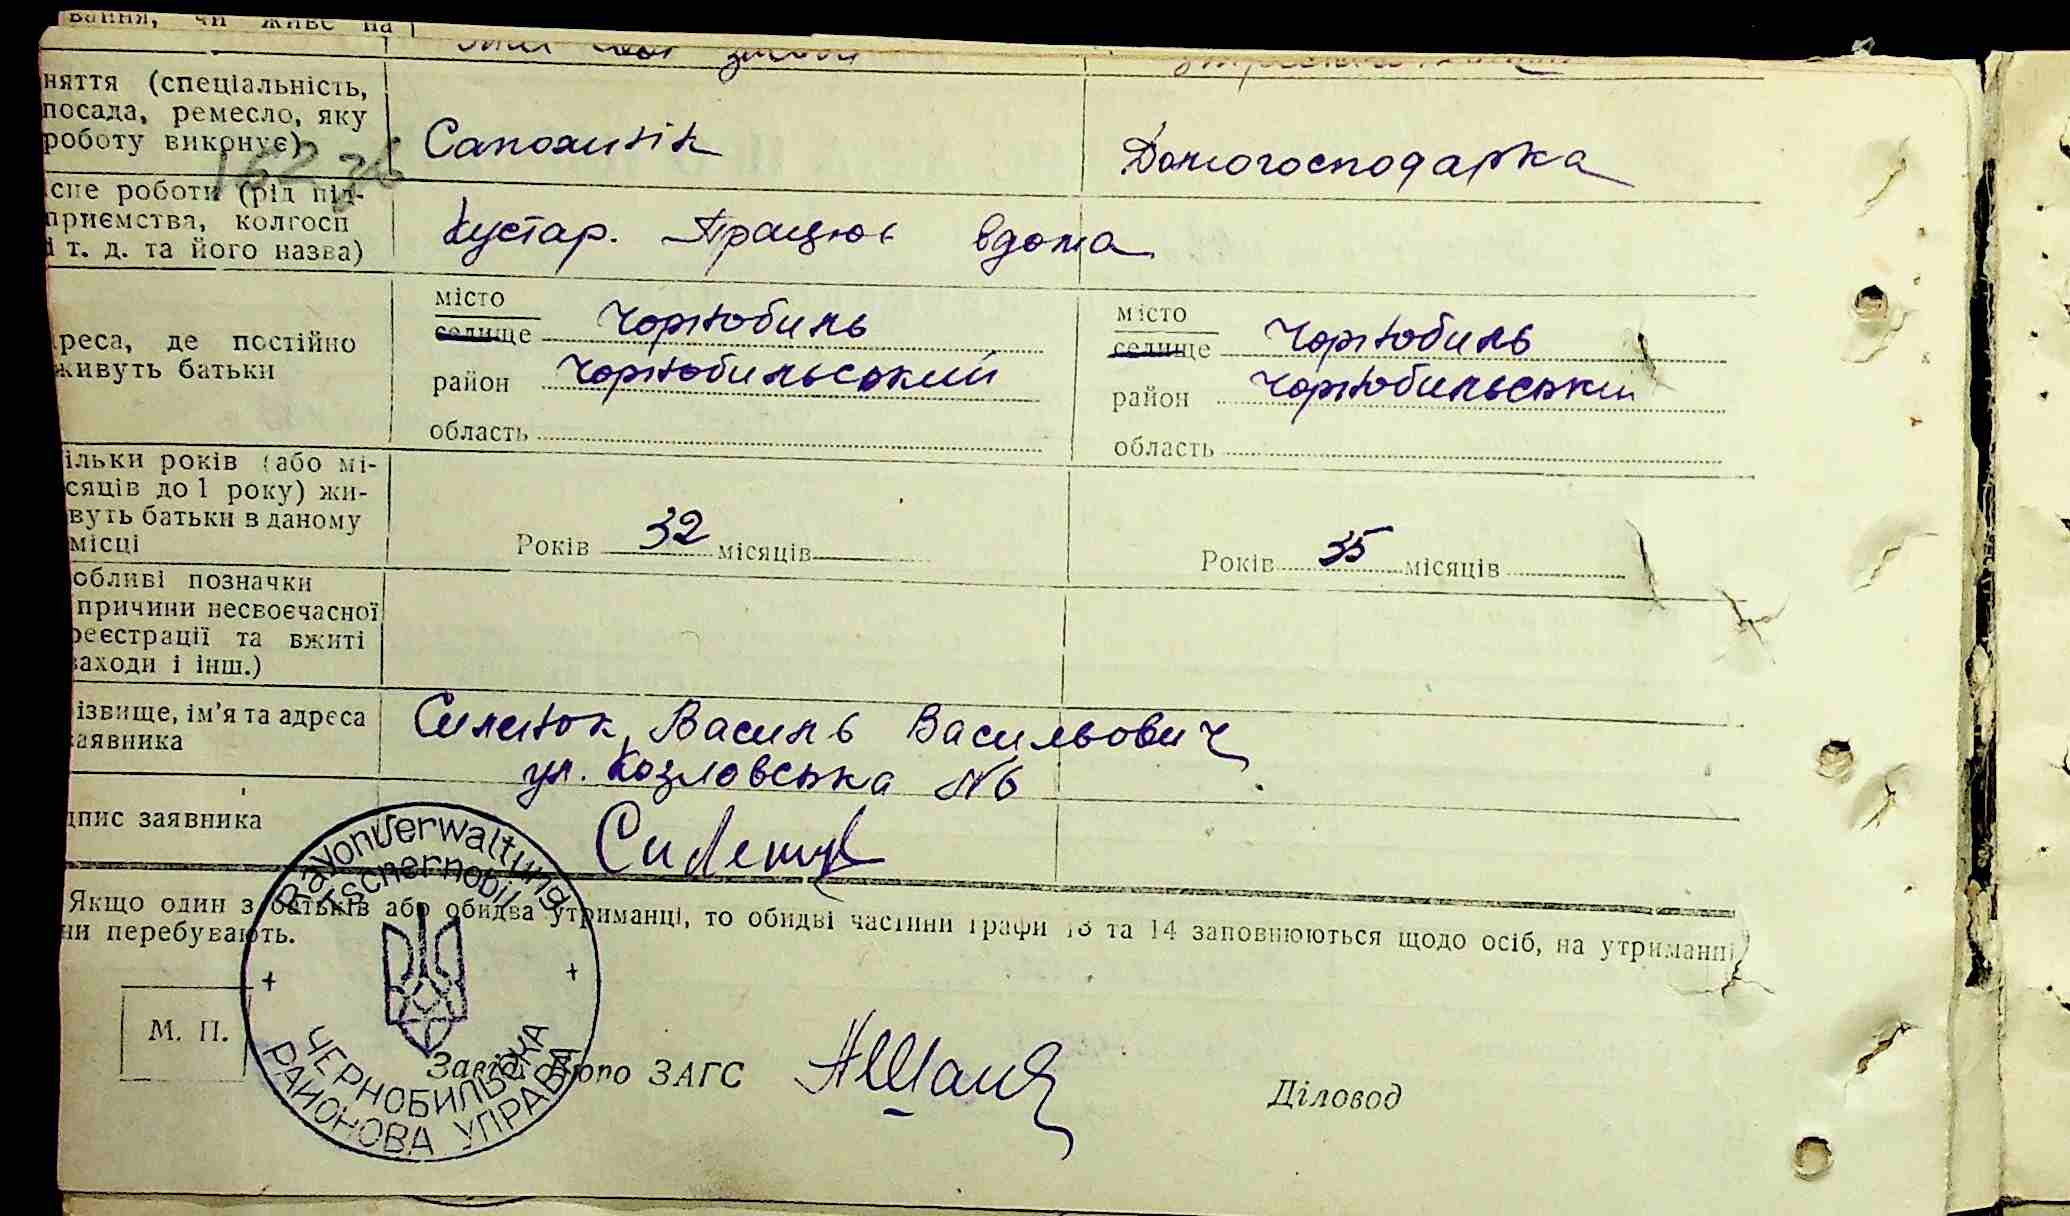 вання, чи живе на
няття (спеціальність,
посада, ремесло, яку
роботу виконує)
Сапожнік
Домогосподарка
сце роботи (рід під-
приємства, колгосп
і т. д. та його назва)
Кустар. Працює вдома
реса, де постійно
живуть батьки
місто
селище Чорнобиль
район Чорнобильський
область
місто
селище Чорнобиль
район Чорнобильський
область
ільки років (або мі-
сяців до 1 року) жи-
вуть батьки в даному
місці
Років 32 місяців
Років 35 місяців
обливі позначки
причини несвоєчасної
реєстрації та вжиті
заходи і інш.)
ізвище, ім'я та адреса
заявника
Силенок, Василь Васильович
ул. Козловська №6
дпис заявника
Якщо один з батьків або обидва утриманці, то обидві частини графи 13 та 14 заповнюються щодо осіб, на утриманні
ни перебувають.
Rayonverwaltung
Tschernobil
ЧЕРНОБИЛЬСКА
РАЙОНОВА УПРАВА
М. П.
Завід. бюро ЗАГС
Діловод